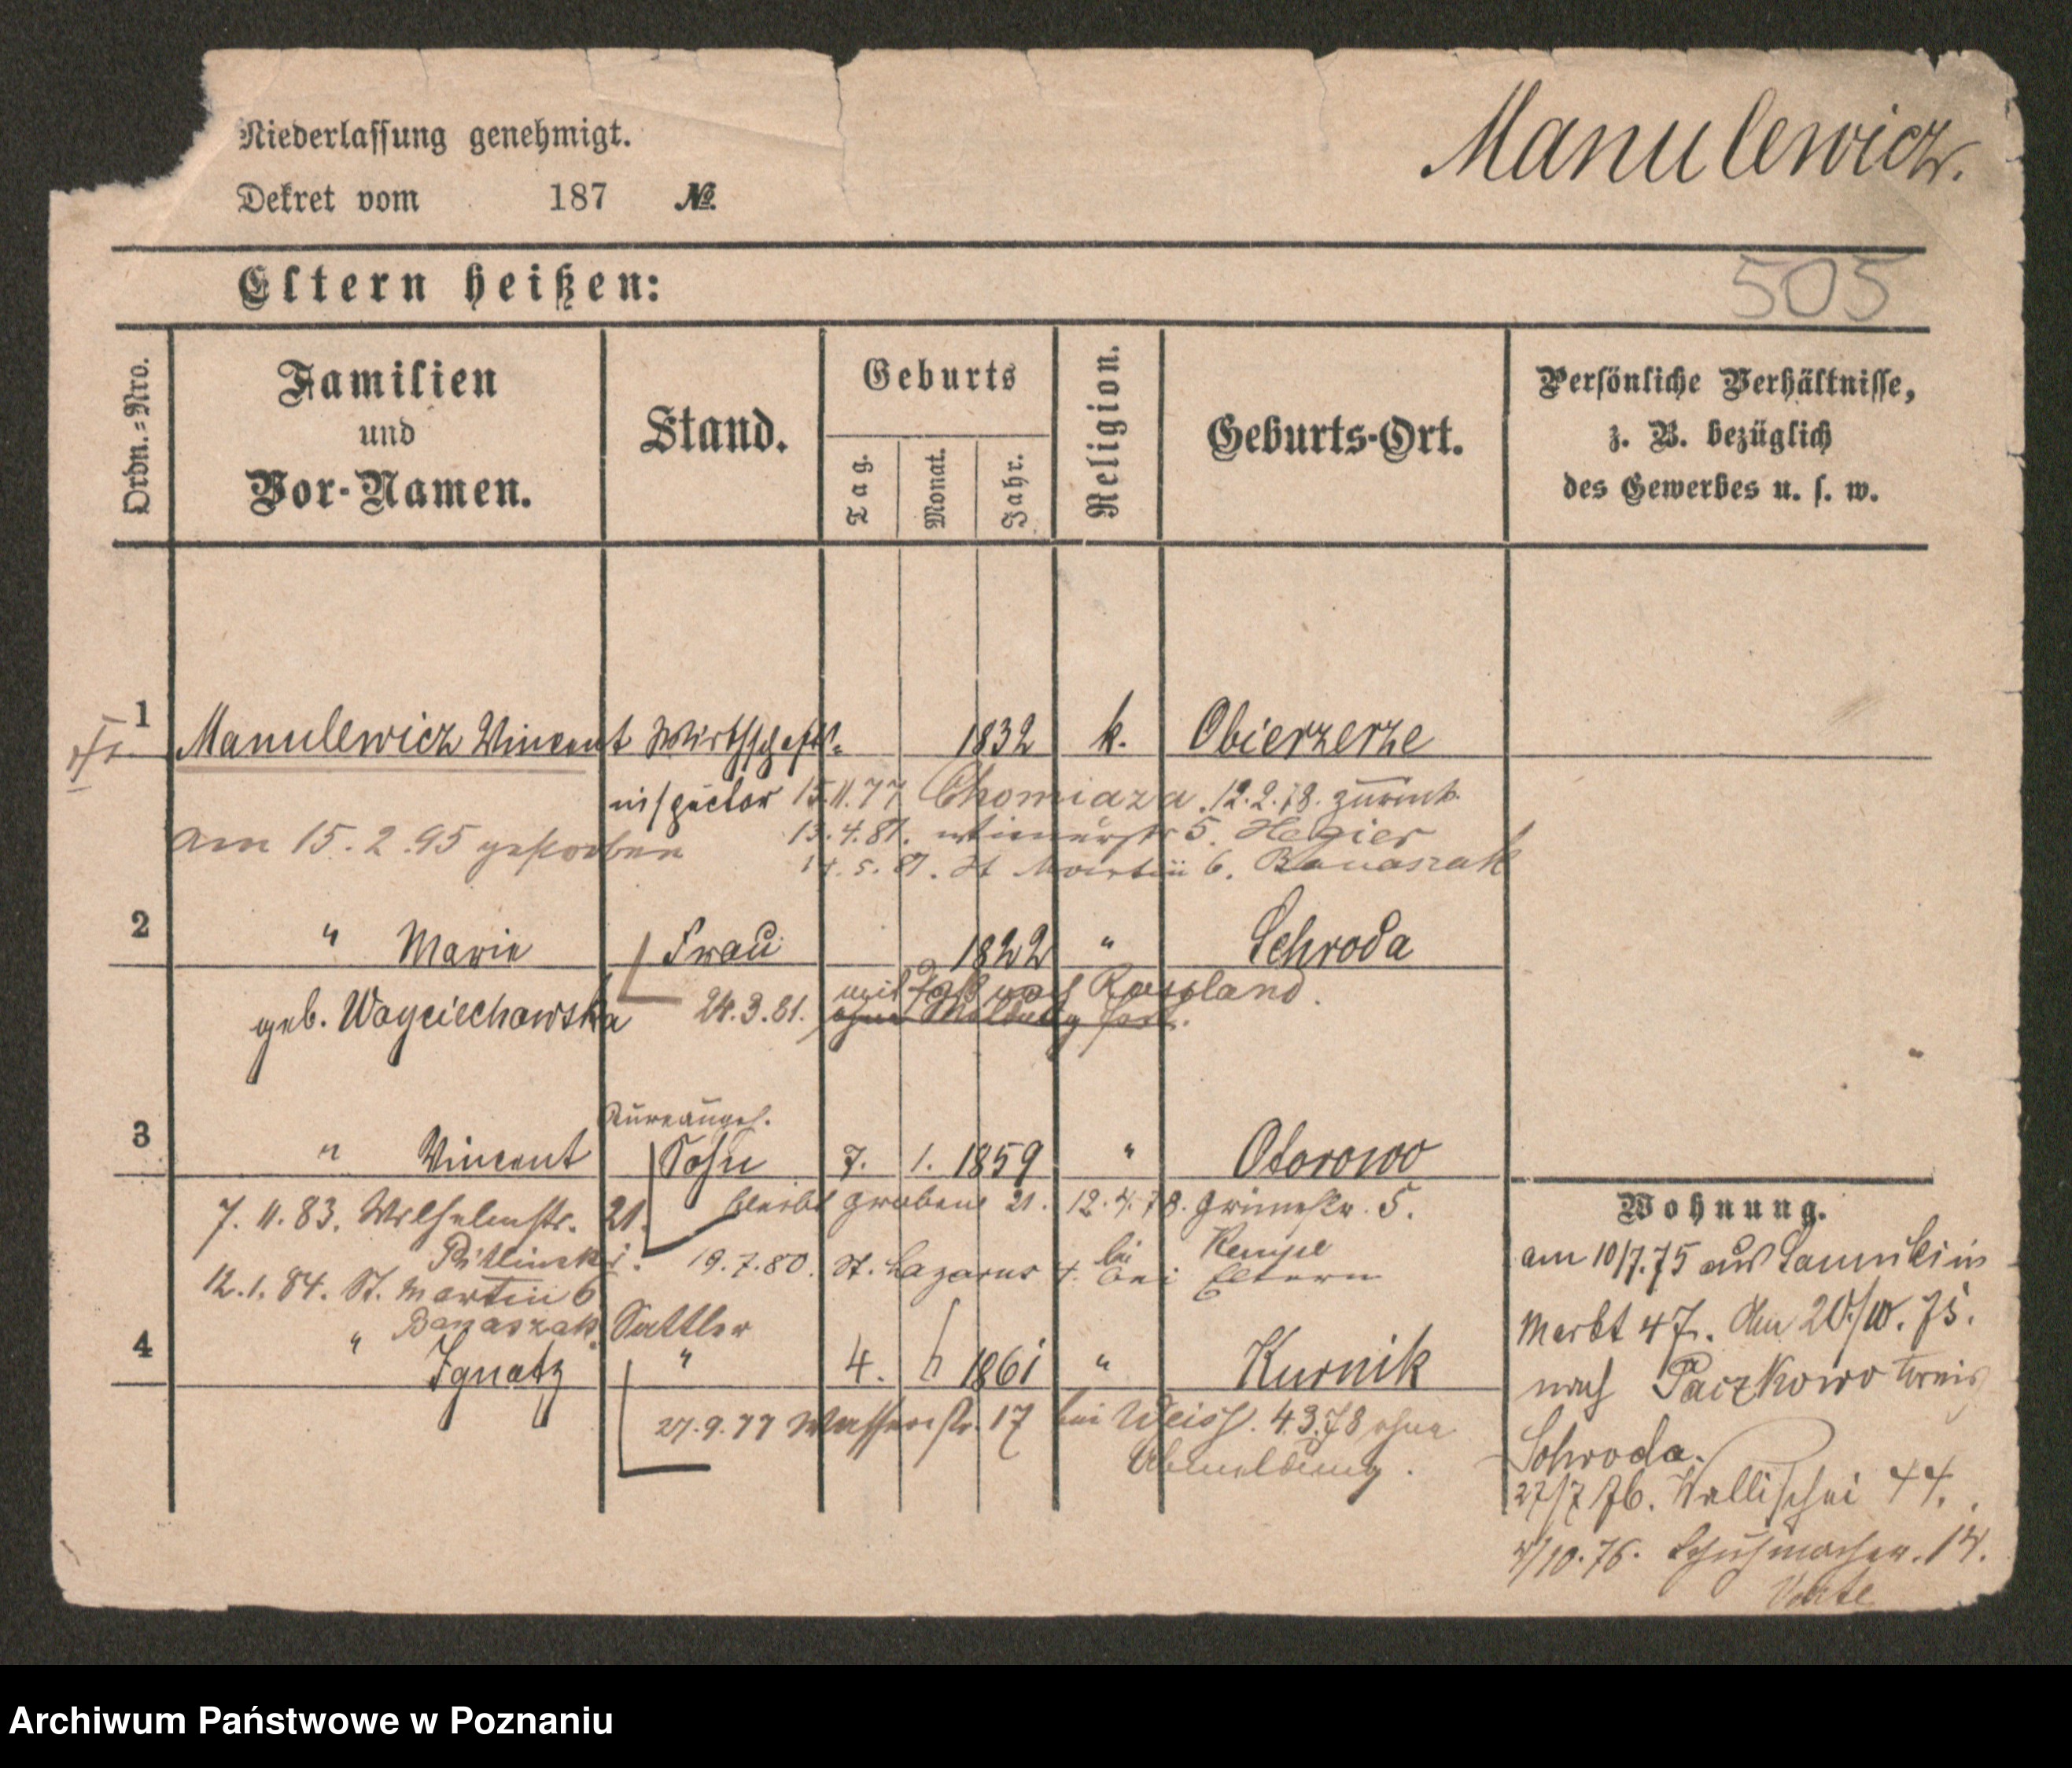 Manulewicz.
Niederlassung genehmigt.
Dekret vom 187 №.
Eltern heißen:
505
Ordn.=Nro.
Familien
und
Vor-Namen.
Stand.
Geburts
Tag.
Monat.
Jahr.
Religion.
Geburts-Ort.
Persönliche Verhältnisse,
z. B. bezüglich
des Gewerbes u. s. w.
1 Manulewicz Vincent Wirthschafts- 1832 k. Obierzerze
inspector 15.11.77 Chomiaza. 12.2.78. zurück.
am 15.2.95 gestorben
13.4.81. 5. Hegier
14.5.81. St Martin 6. Banaszak
2 " Marie Frau 1822 " Schroda
geb. Woyciechowska 24.3.81. mit nach Russland.
ohne Meldung fort.
Büreaugeh.
3 " Vincent Sohn 7. 1. 1859 " Otorowo
bleibt Graben 21. 12.4.78. Grünestr. 5.
7.11.83. Wilhelmstr. 21.
bei Kempe
19.7.80. St. Lazarus bei Eltern
12.1.84. St. Martin 6
Banaszak.
Sattler
4 " Ignatz " 4. 1861 " Kurnik
27.9.77 Wasserstr. 17 bei Weiss. 4.3.78 ohne
Abmeldung.
Wohnung.
am 10/7.75 aus in
Markt 47. den 20/10. 75.
nach Paczkowo Kreis
Schroda.
27/7 76. Wallischei 44.
4/10.76. Schuhmacher. 14.
Archiwum Państwowe w Poznaniu